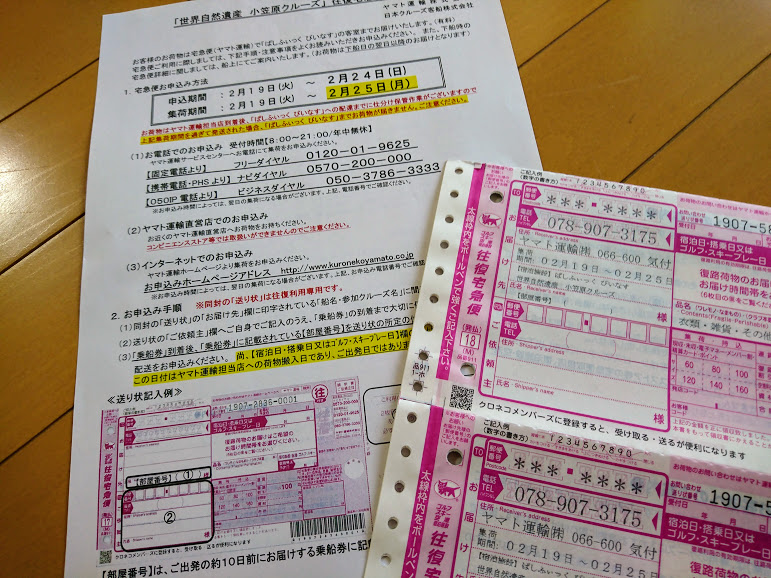 「世界自然遺産 小笠原クルーズ」往復
ヤマト運輸株式会社
日本クルーズ客船株式
お客様のお荷物は宅急便(ヤマト運輸)で「ぱしふぃっく びいなす」の客室までお届けいたします。(有料)
宅急便ご利用に際しましては、下記手順・注意事項をよくお読みいただきお申込みください。また、下船時の
宅急便詳細に関しましては、船上にてご案内いたします。(お荷物は下船日の翌日以降のお届けとなります)
1. 宅急便お申込み方法
申込期間 : 2月19日(火) ~ 2月24日(日)
集荷期間 : 2月19日(火) ~ 2月25日(月)
お荷物はヤマト運輸担当店到着後、「ぱしふぃっく びいなす」への配達までに仕分け保管作業がございますので
上記集荷期間を過ぎて発送された場合、「ぱしふぃっく びいなす」までお荷物が届きません。ご注意ください。
(1)お電話でのお申込み 受付時間[8:00~21:00/年中無休]
ヤマト運輸サービスセンターへお電話にて集荷をお申込みください。
【固定電話より】 フリーダイヤル 0120-01-9625
【携帯電話・PHSより】 ナビダイヤル 0570-200-000
【050IP電話より】 ビジネスダイヤル 050-3786-3333
※お申込み時間によっては、翌日の集荷になる場合がございます。上記、電話番号でご確認ください。
(2)ヤマト運輸直営店でのお申込み
お近くのヤマト運輸直営店へお荷物をお持ちください。
コンビニエンスストア等では取扱いができませんのでご注意ください。
(3)インターネットでのお申込み
ヤマト運輸ホームページより集荷をお申込みください。
お申込みホームページアドレス http://www.kuronekoyamato.co.jp
※お申込み時間によっては、翌日の集荷になる場合がございます。上記、お申込み電話番号でご確認
2. お申込み手順 ※同封の「送り状」は往復利用専用です。
(1)同封の「送り状」の「お届け先」欄に印字されている「船名・参加クルーズ名」に間
(2)「送り状」の「ご依頼主」欄へご自身でご記入のうえ、「乗船券」の到着まで大切に
(3)「乗船券」到着後、「乗船券」に記載されている【部屋番号】を送り状の所定の
配送をお申込みください。尚、【宿泊日・搭乗日又はゴルフ・スキープレー日】欄
この日付はヤマト運輸担当店への荷物搬入日であり、ご出発日ではありま
≪送り状記入例≫
1907-3836-0001
往
【部屋番号】(①)
②
様
往復宅急便
クロネコメンバーズに登録すると、受け取る・送るが便利になります
【部屋番号】は、ご出発の約10日前にお届けする乗船券に記
太線枠内をボールペンで強くご記入下さい。
往復宅急便
(発払)
18
ご記入例
(数字の書き方)
1234567890
郵便番号
***-****
電話
TEL
078-907-3175
お届け先
住所
Receiver's address
ヤマト運輸㈱ 066-600 気付
集荷
期間 02月19日~02月25日
【宿泊施設】ぱしふぃっく びいなす
世界自然遺産 小笠原クルーズ
【部屋番号】
様
郵便番号
電話
ご依頼主
住所 Shipper's address
氏名 Shipper's name
様
お問い合わせ
送り状番号
1907-58
宿泊日・搭乗日又は
ゴルフ・スキープレー日
復路荷物のお届け
お届け時間
衣類、雑貨・その他
60 80 100
120 140 160
クロネコメンバーズに登録すると、受け取る・送るが便利になります
太線枠内をボールペン
往復宅急便
ご記入例
(数字の書き方)
1234567890
郵便番号
***-****
電話
TEL
078-907-3175
お届け先
住所
Receiver's address
ヤマト運輸㈱ 066-600 気付
集荷
期間 02月19日~02月25日
【宿泊施設】ぱしふぃっく びいなす
お問い合わせ
送り状番号
1907-5
宿泊日・搭乗日又は
ゴルフ・スキープレー日
復路荷物の
お届け時